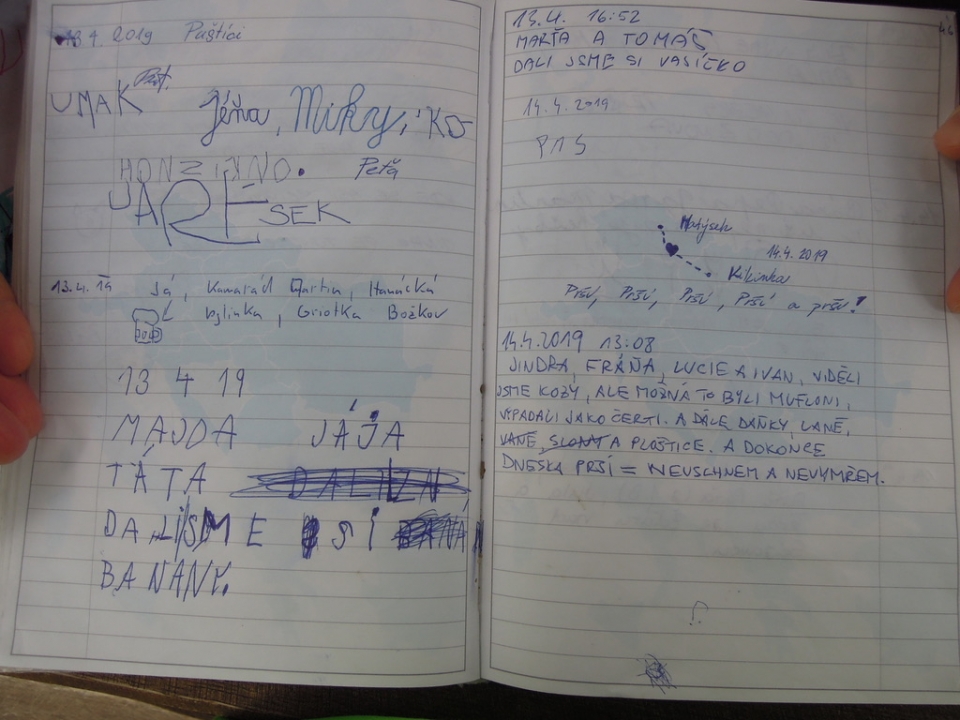 13.4. 2019 Puštíci
UMAK
Jéňa, Miky,
HONZÍKNO. Peťa
JAREŠEK
13.4.19 Já, kamarád Martin, Hanácká
bylinka, Griotka Božkov
13 4 19
MAJDA JÁJA
TÁTA
DALI JSME SI
BANÁNY.
13.4. 16:52
MARŤA A TOMÁŠ
DALI JSME SI VAJÍČKO
14.4.2019
Matýsek
14.4.2019
Kikinka
Prší, Prší, Prší, Prší a prší!
14.4.2019 13:08
JINDRA, FRÁŇA, LUCIE A IVAN, VIDĚLI
JSME KOZY, ALE MOŽNÁ TO BYLI MUFLONI,
VYPADALI JAKO ČERTI. A DÁLE DAŇKY, LANĚ,
A PLOŠTICE. A DOKONCE
DNESKA PRŠÍ = NEUSCHNEM A NEVYMŘEM.